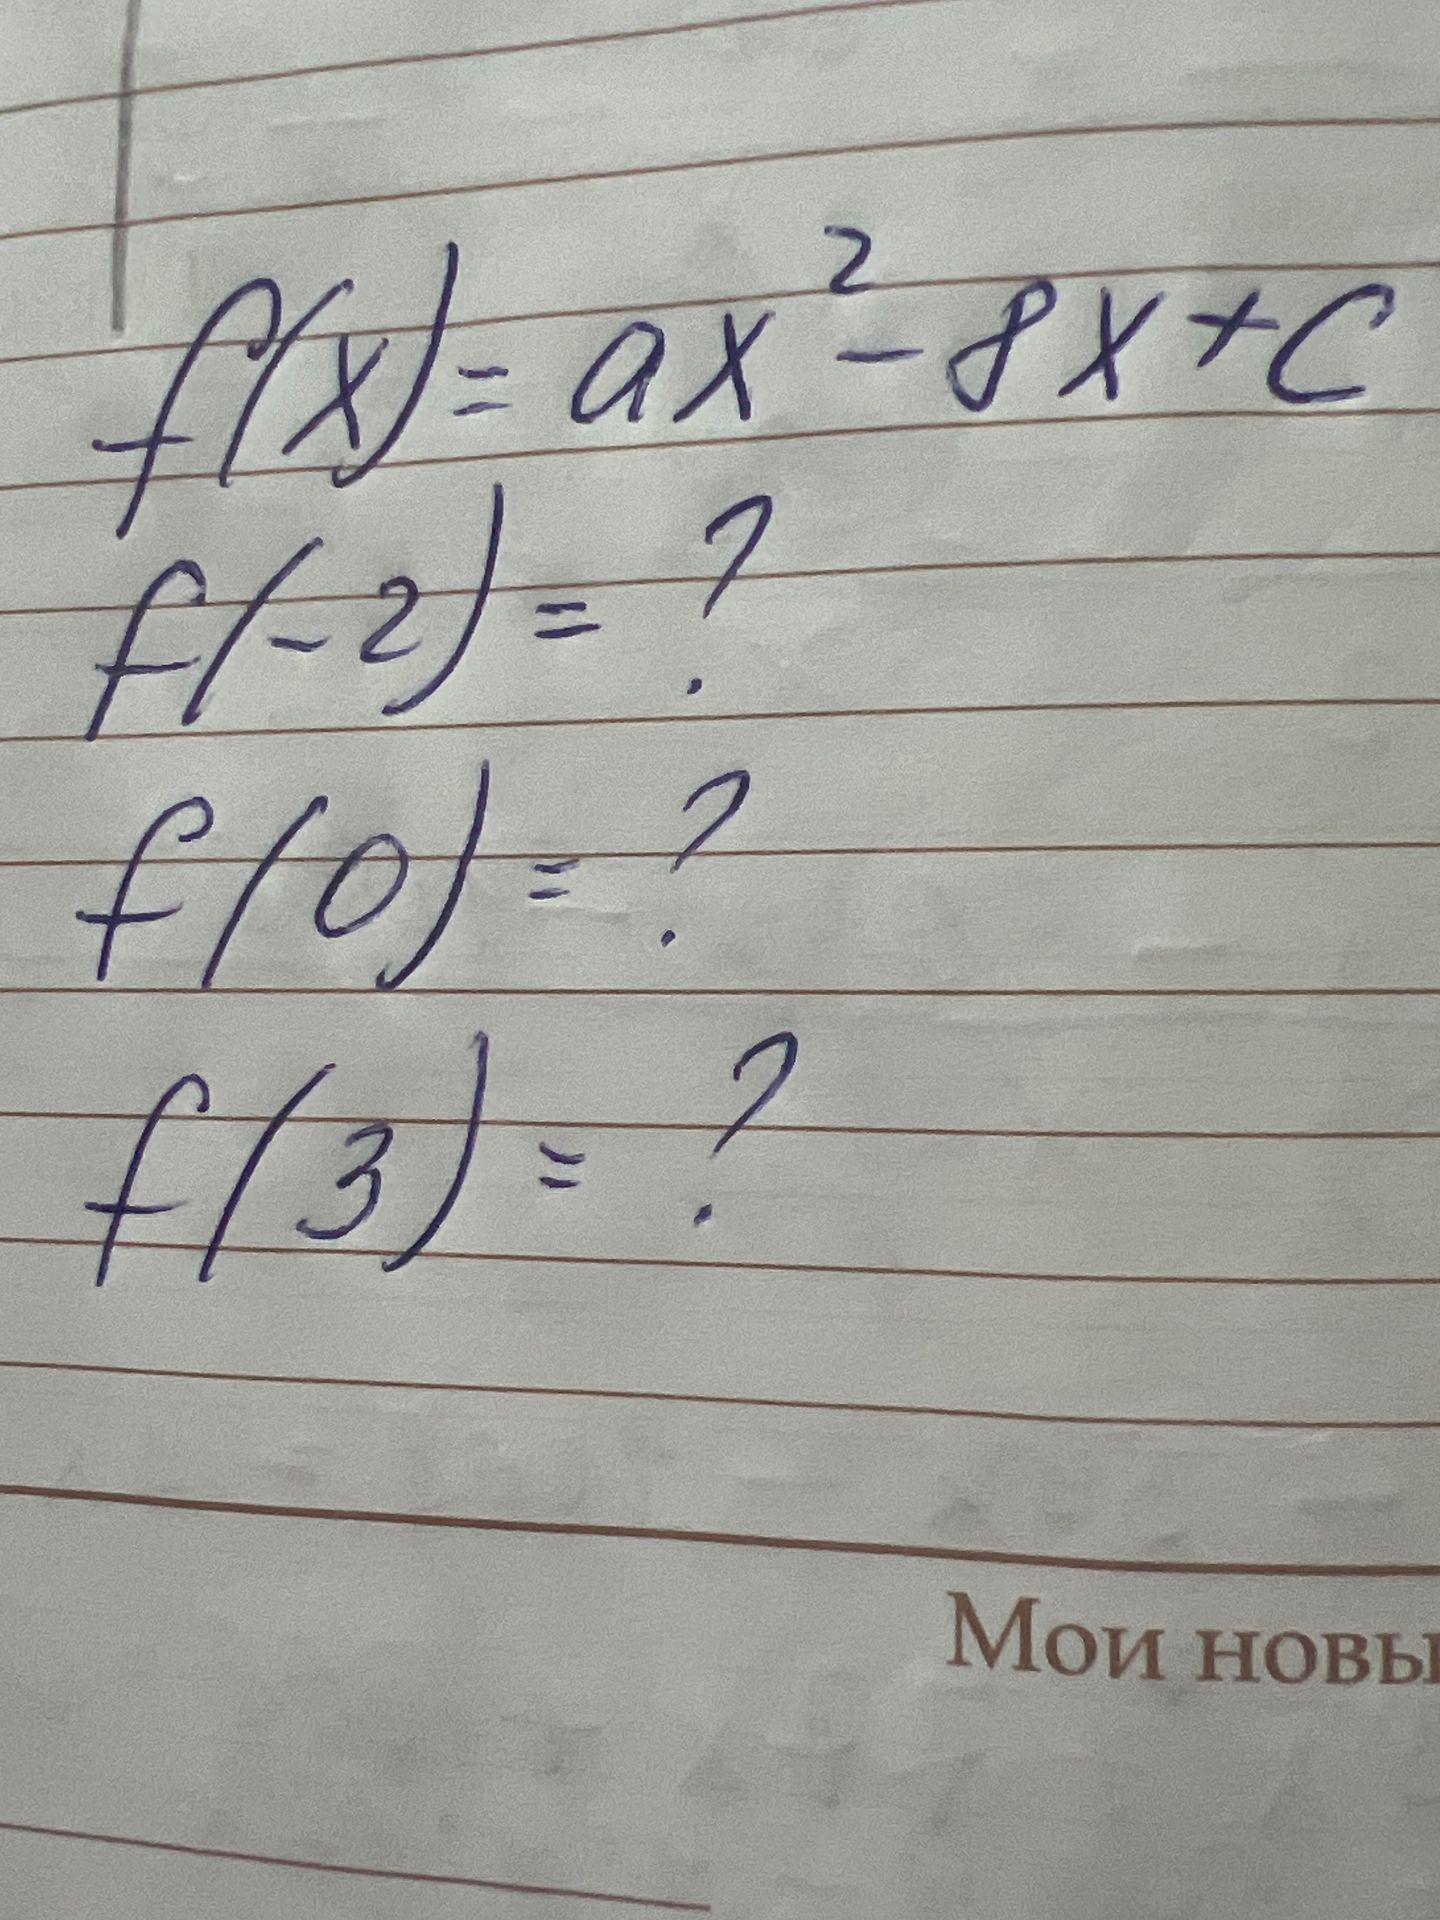 f(x) = ax² - 8x + c
f(-2) = ?
f(0) = ?
f(3) = ?
Мои новы